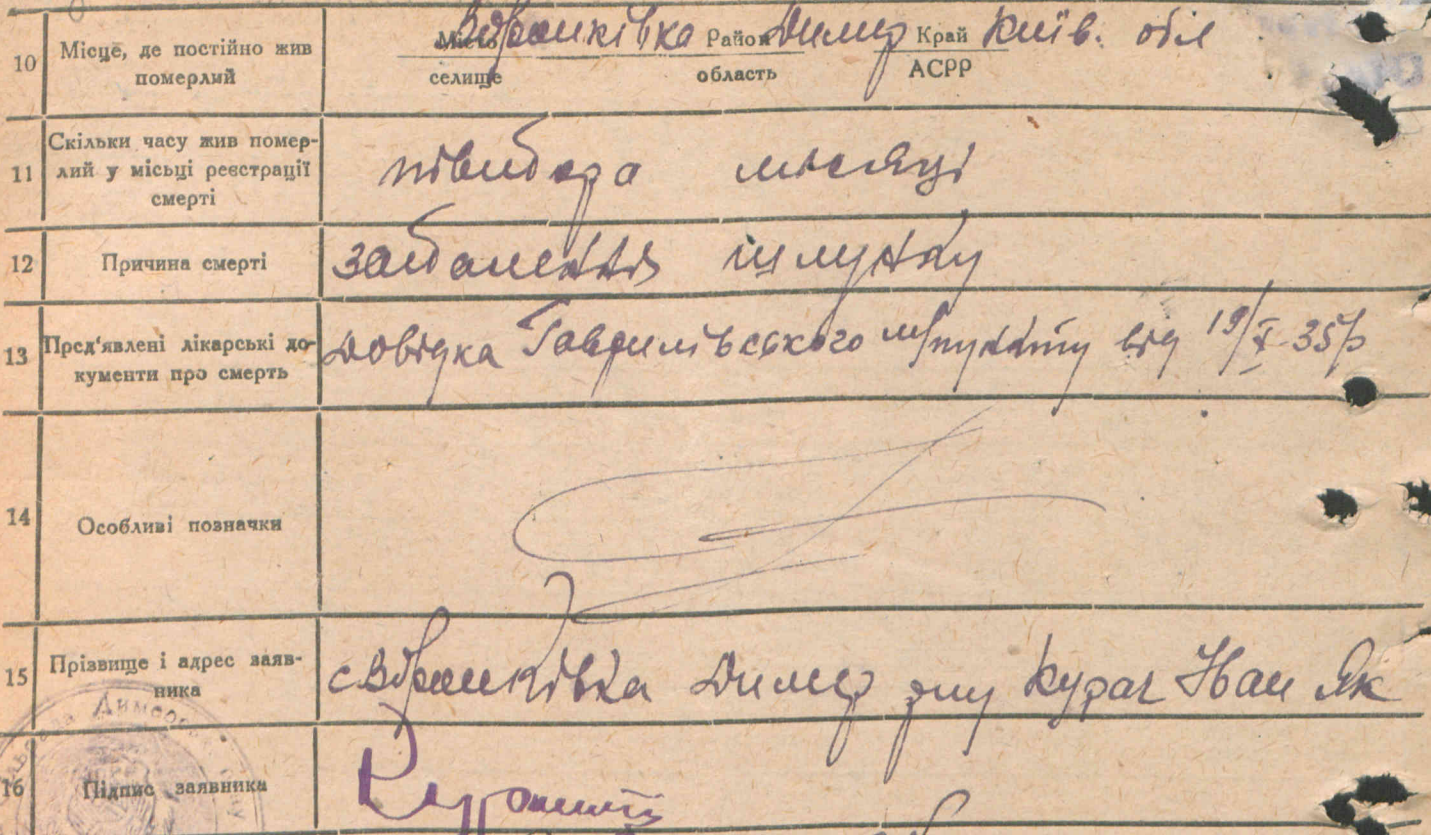 10 Місце, де постійно жив померлий
Місто Абрамківка Район Димер Край Київ. обл
селище область АСРР
11 Скільки часу жив помер-
лий у місьці реєстрації
смерті
півтора місяці
12 Причина смерті
заболення шлунку
13 Пред'явлені лікарські до-
кументи про смерть
довідка Гаврилівського м/пункту від 19/X-35р
14 Особливі позначки
15 Прізвище і адрес заяв-
ника
с Димер р-ну Курач Іван Як
16 Підпис заявника